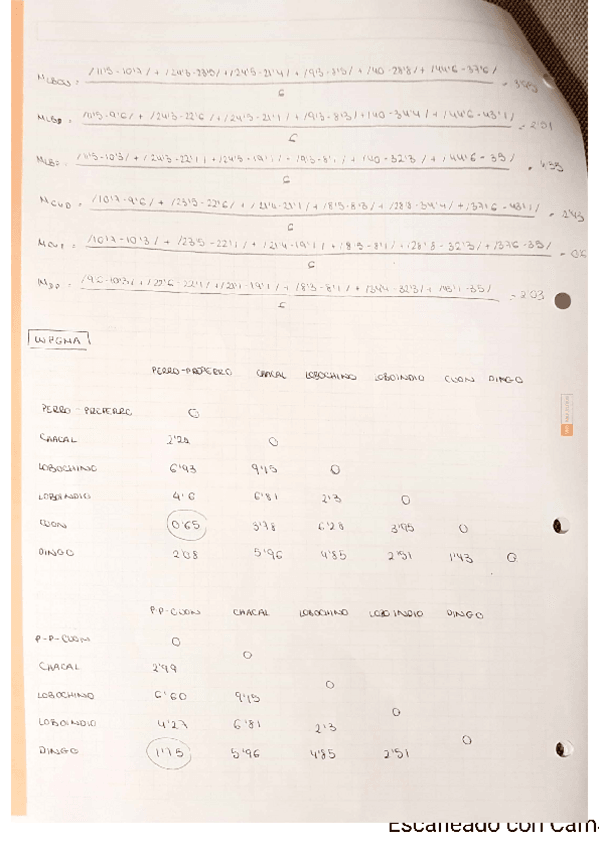 /11'5-10'7/ + /24'3-23'5/ + /24'5-21'4/ + /9'3-8'5/ + /40-28'8/ + /44'6-37'6/ = 3'95
6
/11'5-9'6/ + /24'3-22'6/ + /24'5-21'1/ + /9'3-8'3/ + /40-34'4/ + /44'6-43'1/ = 2'51
6
/11'5-10'3/ + /24'3-22'1/ + /24'5-19'1/ + /9'3-8'1/ + /40-32'3/ + /44'6-35/
6
/10'7-9'6/ + /23'5-22'6/ + /21'4-21'1/ + /8'5-8'3/ + /28'8-34'4/ + /37'6-43'1/
6
/10'7-10'3/ + /23'5-22'1/ + /21'4-19'1/ + /8'5-8'1/ + /28'8-32'3/ + /37'6-35/
6
/9'6-10'3/ + /22'6-22'1/ + /21'1-19'1/ + /8'3-8'1/ + /34'4-32'3/ + /43'1-35/
6
WPGMA
PERRO-PROPERRO CHACAL LOBOCHINO LOBOINDIO CUON DINGO
PERRO-PROPERRO 0
CHACAL 0
LOBOCHINO 6'93 9'15 0
LOBOINDIO 4'6 6'81 2'3 0
CUON 0'65 3'78 6'28 3'95 0
DINGO 2'08 5'96 4'85 2'51 1'43 0
P.P-CUON CHACAL LOBOCHINO LOBOINDIO DINGO
P-P-CUON 0
CHACAL 2'99 0
LOBOCHINO 6'60 9'15 0
LOBOINDIO 4'27 6'81 2'3 0
DINGO 1'75 5'96 4'85 2'51 0
Escaneado con Cam